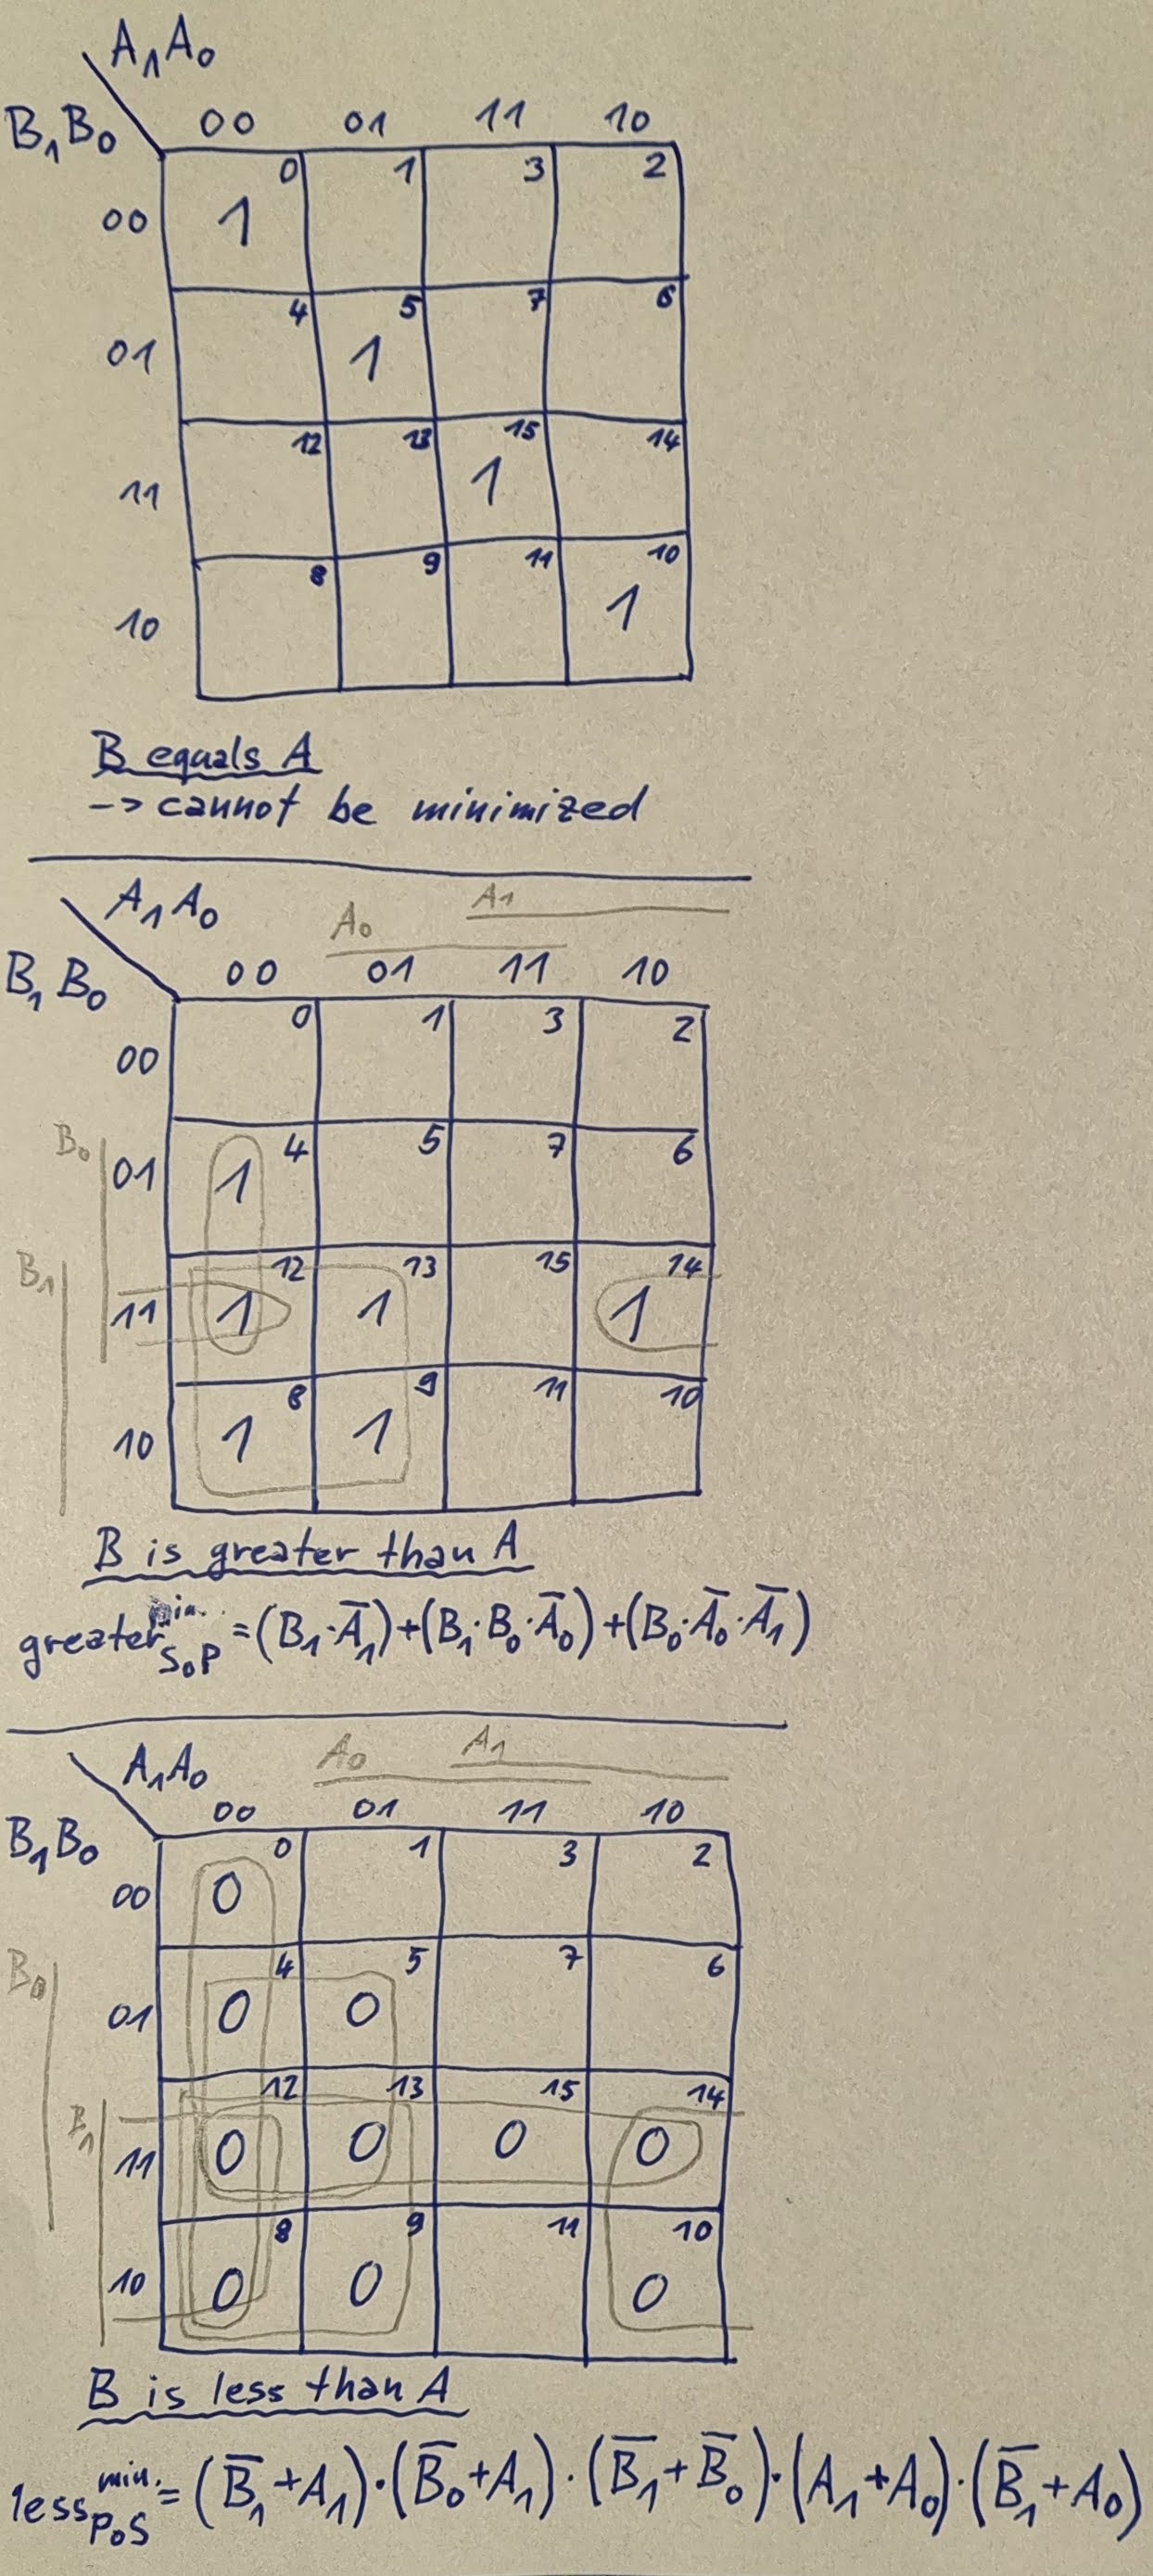 A₁A₀
B₁B₀ 00 01 11 10
0 1 3 2
00 1
4 5 7 6
01 1
12 13 15 14
11 1
8 9 11 10
10 1
B equals A
-> cannot be minimized
A₁A₀ A₀ A₁
B₁B₀ 00 01 11 10
0 1 3 2
00
4 5 7 6
B₀ 01 1
12 13 15 14
B₁ 11 1 1 1
8 9 11 10
10 1 1
B is greater than A
greater min. SoP = (B₁·A̅₁)+(B₁·B₀·A̅₀)+(B₀·A̅₀·A̅₁)
A₁A₀ A₀ A₁
B₁B₀ 00 01 11 10
0 1 3 2
00 0
4 5 7 6
B₀ 01 0 0
12 13 15 14
B₁ 11 0 0 0 0
8 9 11 10
10 0 0 0
B is less than A
less min. PoS = (B̅₁+A₁)·(B̅₀+A₁)·(B̅₁+B̅₀)·(A₁+A₀)·(B̅₁+A₀)